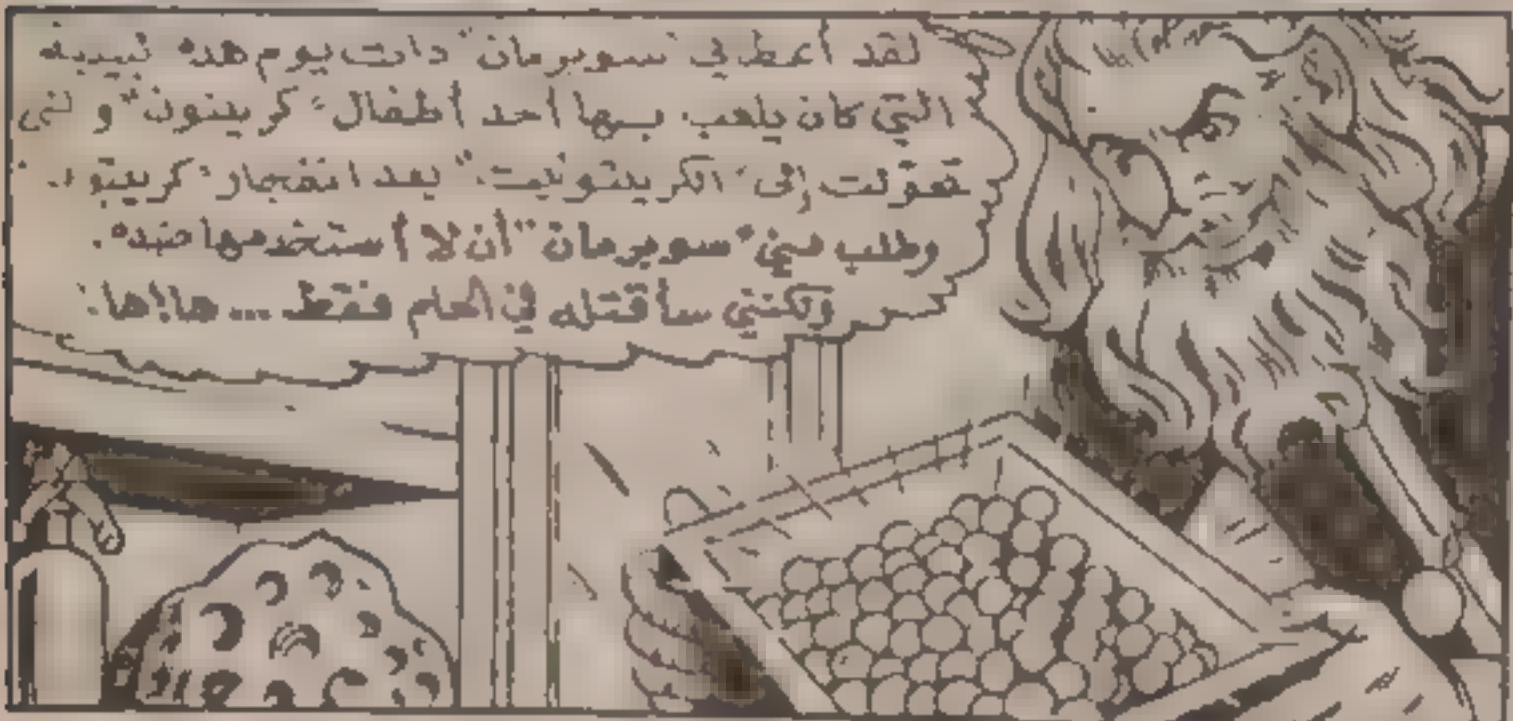 لقد أعطاني "سوبرمان" ذات يوم هذه
التي كان يلعب بها أحد أطفال "كريبتون" و
تحوّلت إلى "الكريبتونيت" بعد انفجار "كريبتون".
وطلب مني "سوبرمان" أن لا أستخدمها ضده.
ولكنني سأقتله في الحلم فقط ... ها!ها!